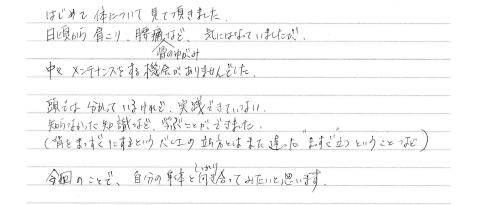 はじめて 体について 見て頂きました.
日頃から 肩こり、腰痛など、気にはなっていましたが.
骨のゆがみ
中々 メンテナンスをする機会がありませんでした.
頭では 分かっているけれど、実践できていない.
知らなかった知識など、学ぶことができました.
(背をまっすぐにするという バレエの立ち方とはまた違った "まっすぐ立つ" ということ など)
しっかり
今回のことで、自分の身体と向き合ってみたいと思います.